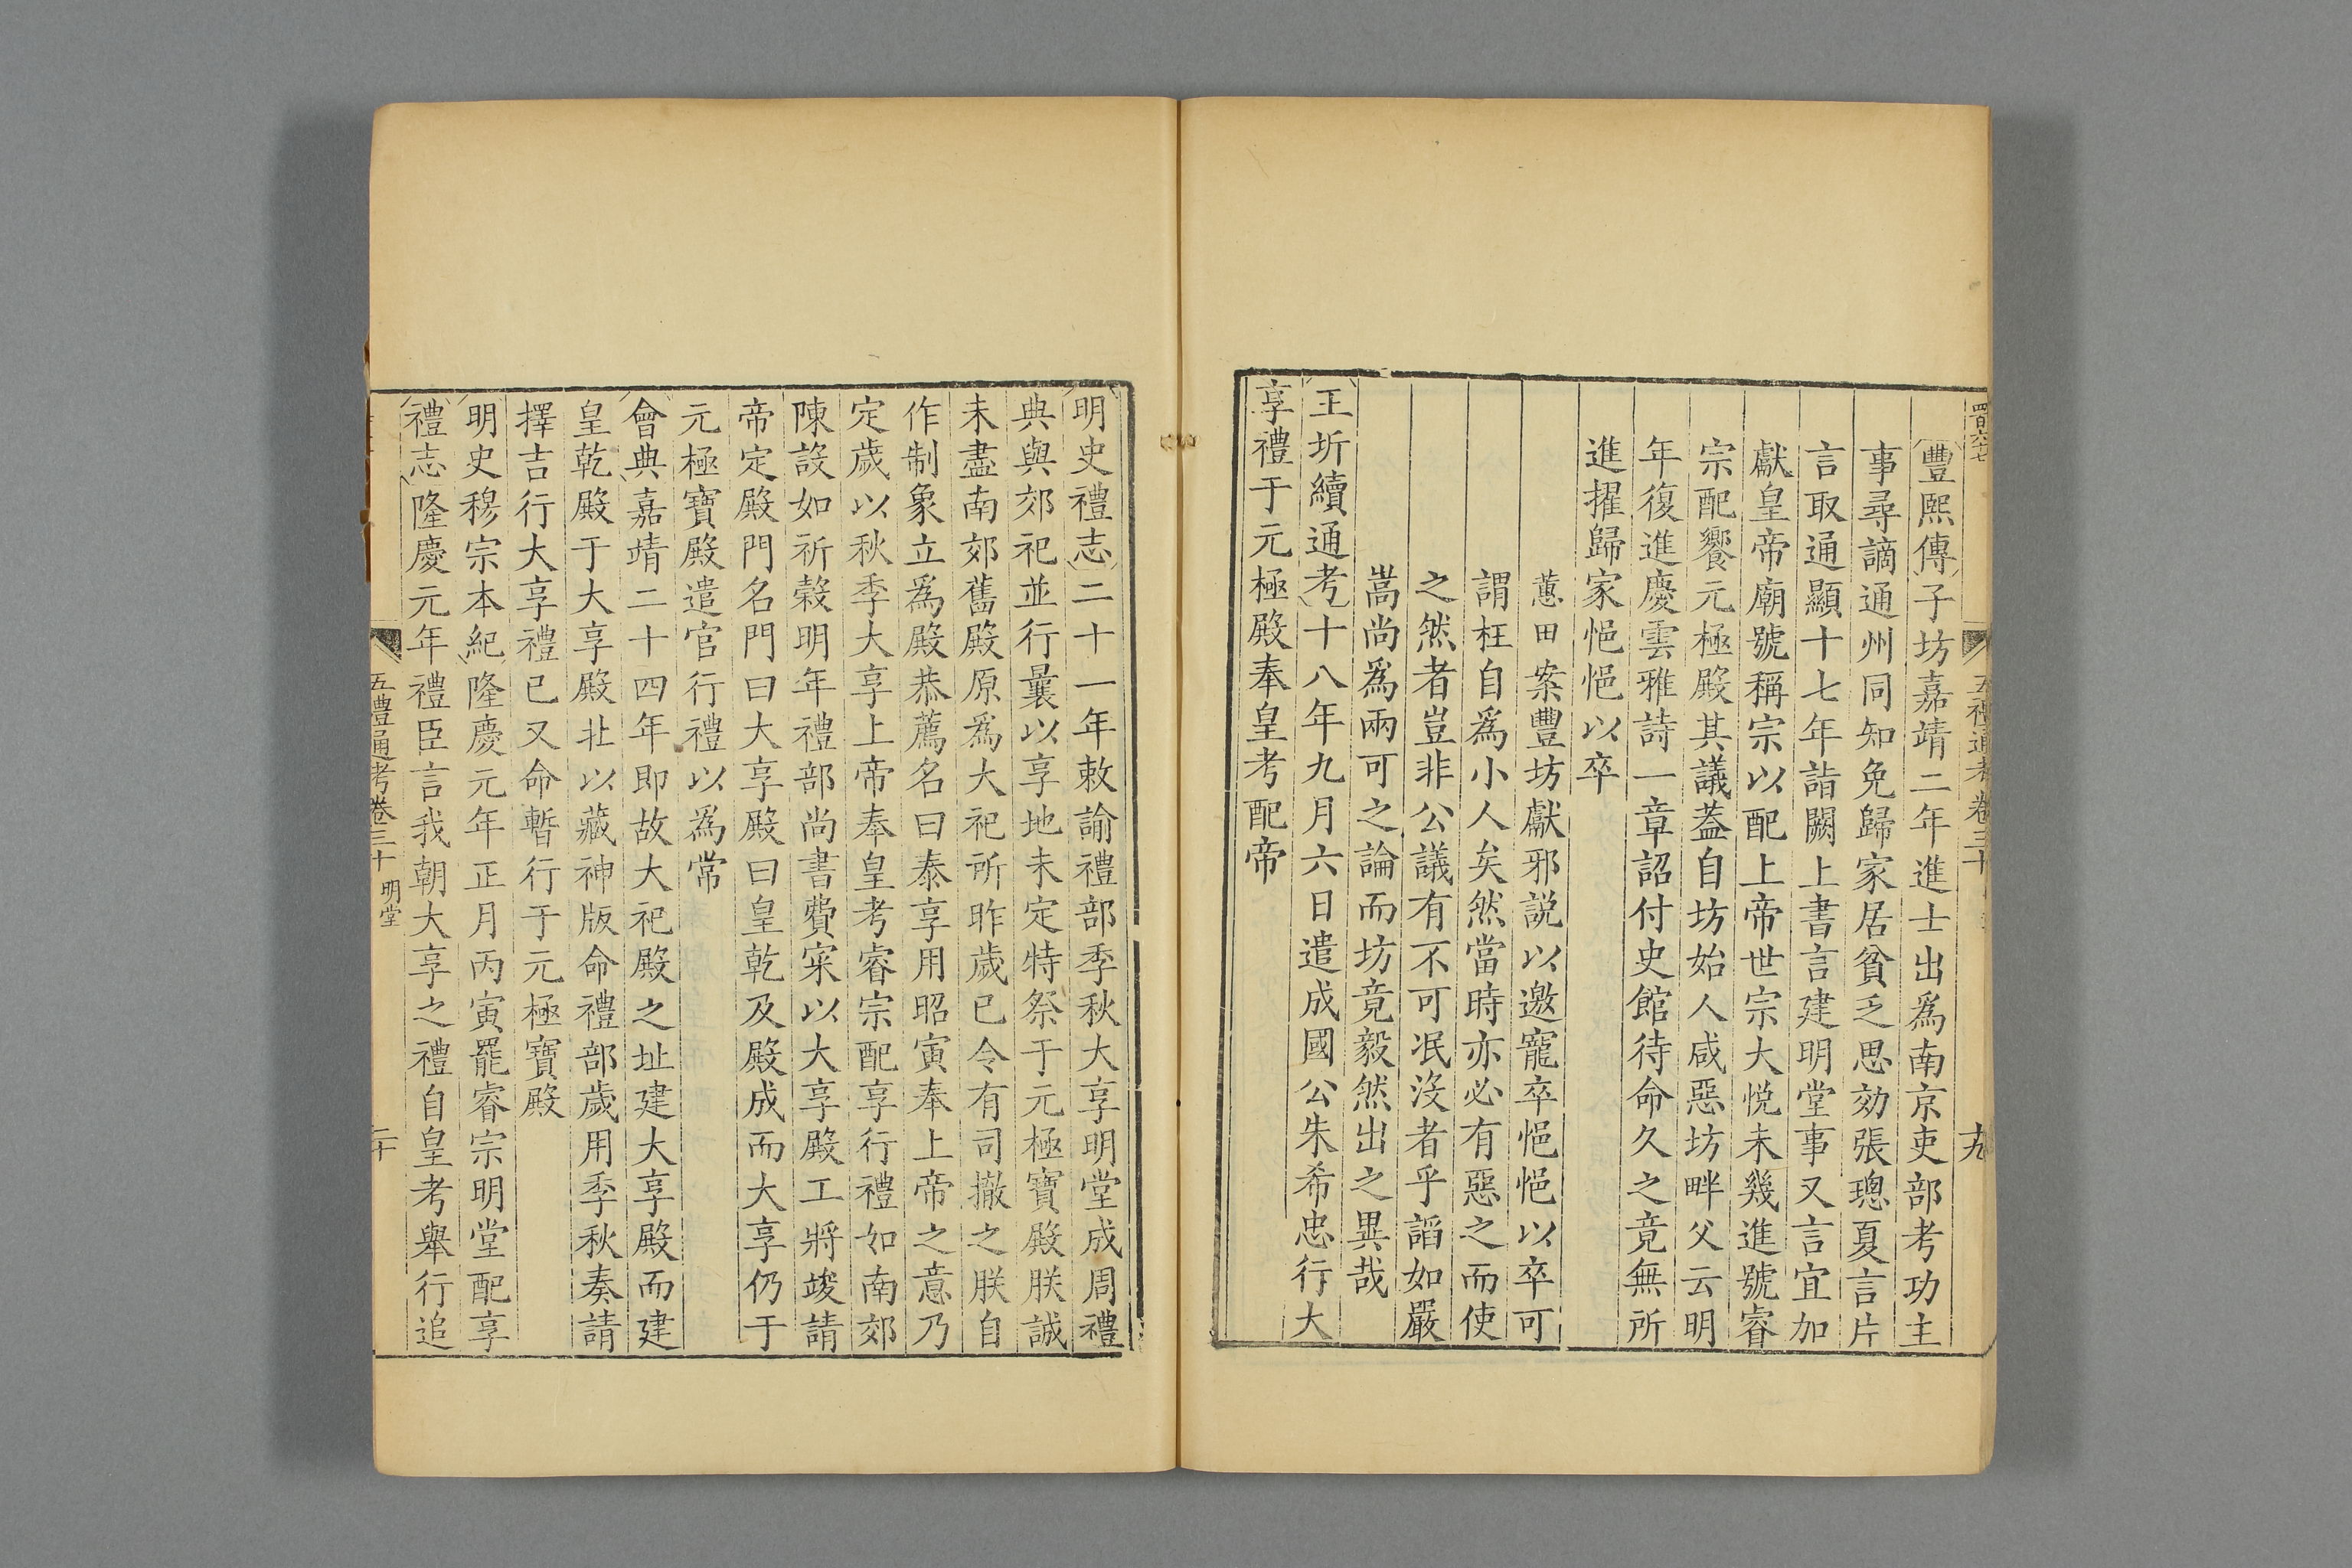 五禮通考卷三十
九
豐熙傳子坊嘉靖二年進士出爲南京吏部考功主
事尋謫通州同知免歸家居貧乏思効張璁夏言片
言取通顯十七年詣闕上書言建明堂事又言宜加
獻皇帝廟號稱宗以配上帝世宗大悅未幾進號睿
宗配饗元極殿其議葢自坊始人咸惡坊畔父云明
年復進慶雲雅詩一章詔付史館待命久之竟無所
進擢歸家悒悒以卒
蕙田案豐坊獻邪説以邀寵卒悒悒以卒可
謂枉自爲小人矣然當時亦必有惡之而使
之然者豈非公議有不可泯沒者乎謟如嚴
嵩尚爲兩可之論而坊竟毅然出之異哉
王圻續通考十八年九月六日遣成國公朱希忠行大
享禮于元極殿奉皇考配帝
明史禮志二十一年敕諭禮部季秋大享明堂成周禮
典與郊祀並行曩以享地未定特祭于元極寶殿朕誠
未盡南郊舊殿原爲大祀所昨歲已令有司撤之朕自
作制象立爲殿恭薦名曰泰享用昭寅奉上帝之意乃
定歲以秋季大享上帝奉皇考睿宗配享行禮如南郊
陳設如祈穀明年禮部尚書費寀以大享殿工將竣請
帝定殿門名門曰大享殿曰皇乾及殿成而大享仍于
元極寶殿遣官行禮以為常
會典嘉靖二十四年即故大祀殿之址建大享殿而建
皇乾殿于大享殿北以藏神版命禮部歲用季秋奏請
擇吉行大享禮已又命暫行于元極寶殿
明史穆宗本紀隆慶元年正月丙寅罷睿宗明堂配享
禮志隆慶元年禮臣言我朝大享之禮自皇考舉行追
五禮通考卷三十 明堂
二十